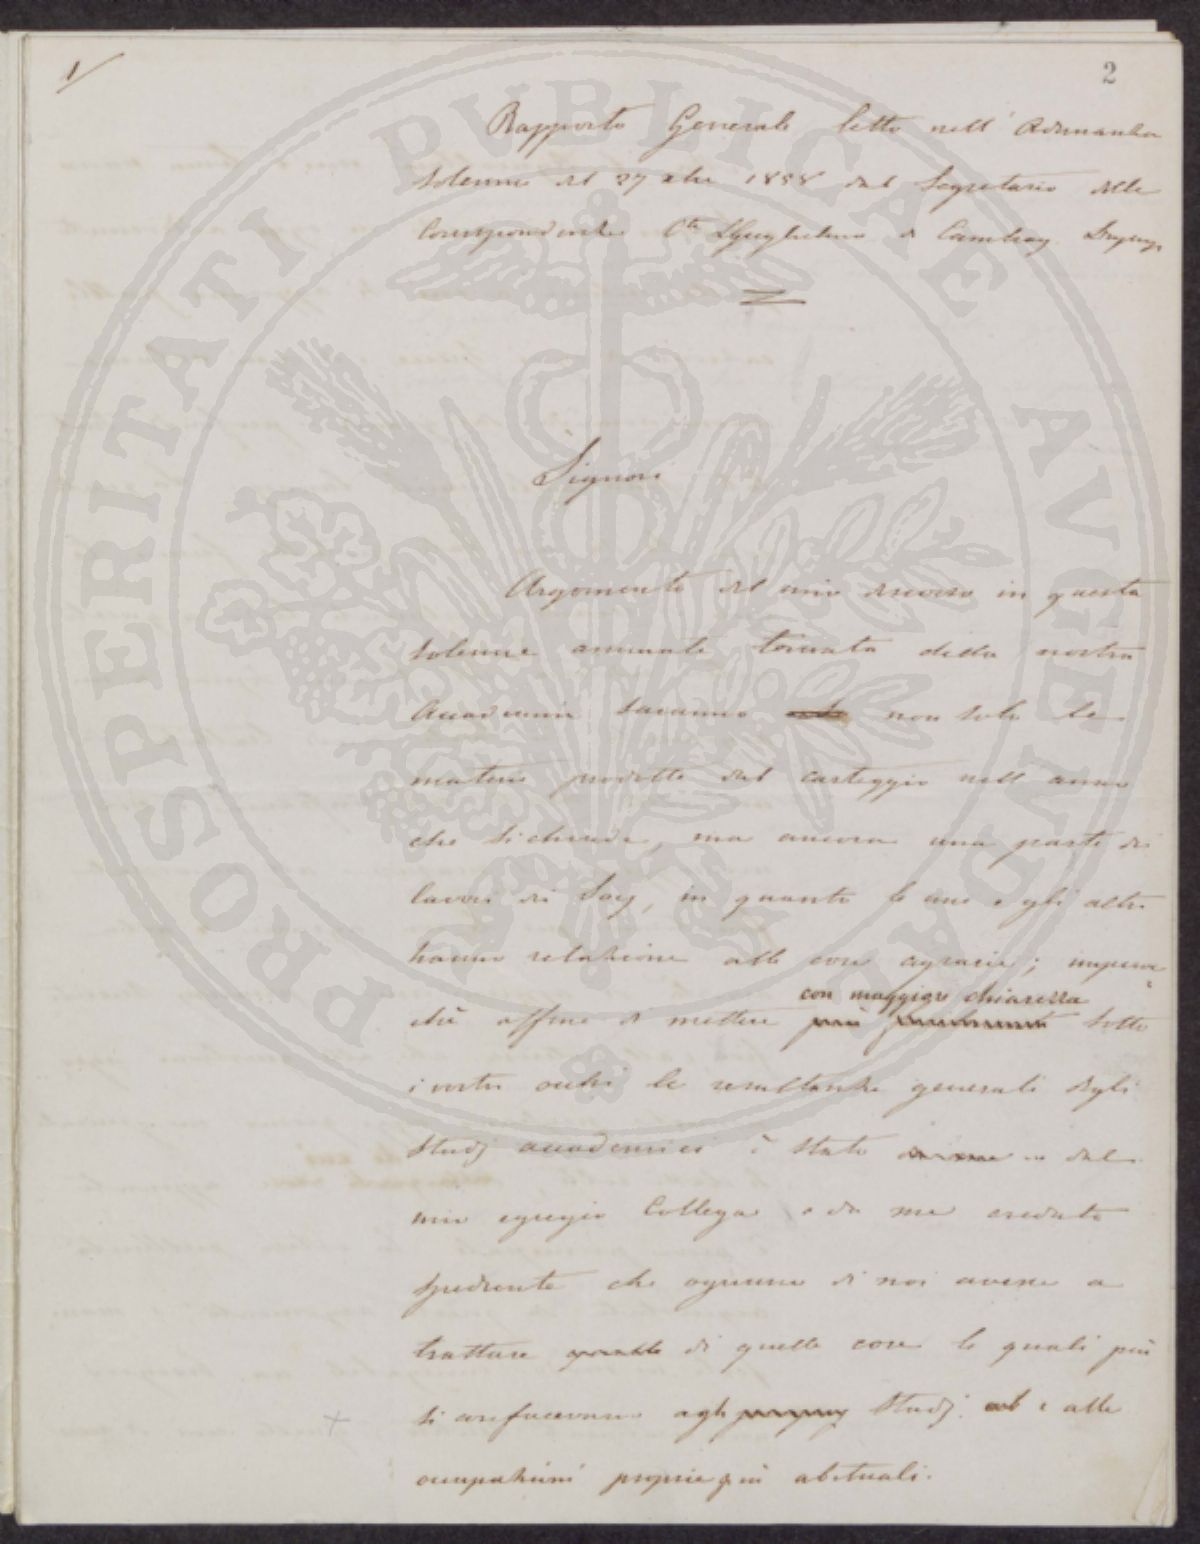 1/
2
Rapporto Generale letto nell' Adunanza
solenne del 27 xbre 1858 dal Segretario delle
Corrispondenze Cte Guglielmo di Cambray Digny
Signori
Argomento del mio discorso in questa
solenne annuale tornata della nostra
Accademia saranno non solo le
materie prodotte dal carteggio nell' anno
che si chiude, ma ancora una parte dei
lavori dei Socj, in quanto le une e gli altri
hanno relazione alle cose agrarie; imperoc
con maggiore chiarezza
chè affine di mettere più sotto
i vostri occhi le resultanze generali degli
studj accademici è stato dal
mio egregio Collega e da me creduto
spediente che ognuno di noi avesse a
trattare di quelle cose le quali più
si confacevano agli studj e alle
occupazioni proprie più abituali.
PROSPERITATI PVBLICAE AVGENDAE